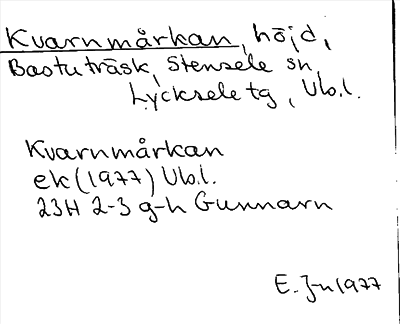 Kvarnmårkan, höjd,
Bastuträsk, Stensele sn,
Lycksele tg, Vb.l.
Kvarnmårkan
ek (1977) Vb.l.
23H 2-3 g-h Gunnarn
E. J-n 1977